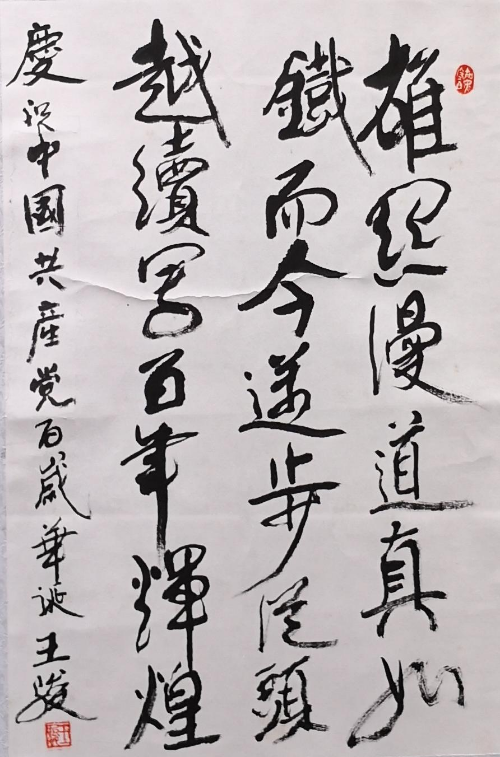 雄關漫道真如
鐵而今邁步從頭
越續写百年輝煌
慶祝中國共産党百歲華誕王駿